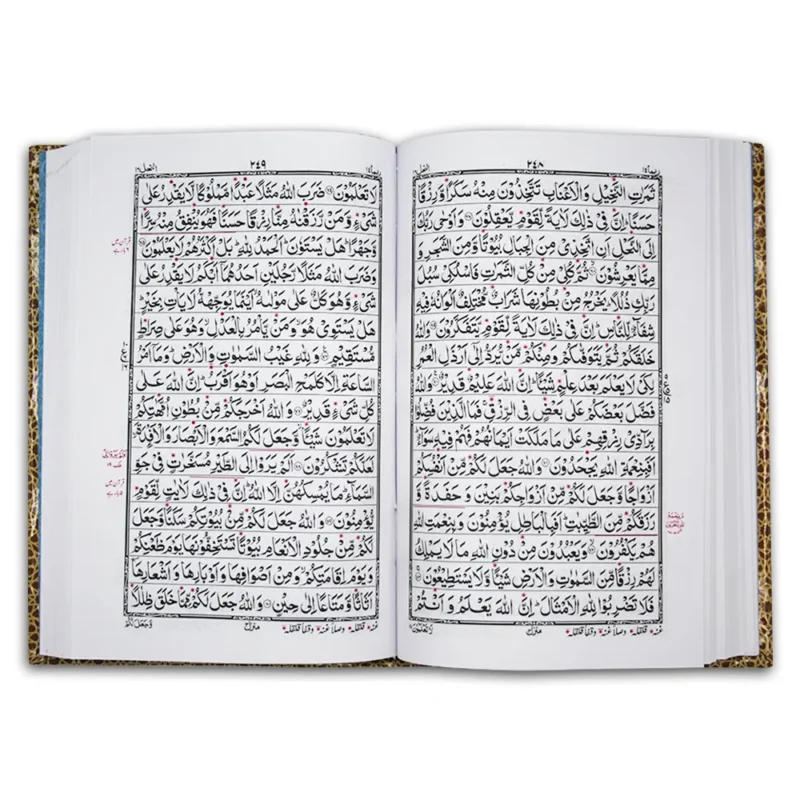 ربما١٤ ٢٤٨ النحل١٦
ثَمَرٰتِ النَّخِيْلِ وَ الْاَعْنَابِ تَتَّخِذُوْنَ مِنْهُ سَكَرًا وَّرِزْقًا
حَسَنًا اِنَّ فِيْ ذٰلِكَ لَاٰيَةً لِّقَوْمٍ يَّعْقِلُوْنَ وَ اَوْحٰى رَبُّكَ
اِلَى النَّحْلِ اَنِ اتَّخِذِيْ مِنَ الْجِبَالِ بُيُوْتًا وَّمِنَ الشَّجَرِ وَ
مِمَّا يَعْرِشُوْنَ ثُمَّ كُلِيْ مِنْ كُلِّ الثَّمَرٰتِ فَاسْلُكِيْ سُبُلَ
رَبِّكِ ذُلُلًا يَخْرُجُ مِنْ بُطُوْنِهَا شَرَابٌ مُّخْتَلِفٌ اَلْوَانُهٗ فِيْهِ
شِفَآءٌ لِّلنَّاسِ اِنَّ فِيْ ذٰلِكَ لَاٰيَةً لِّقَوْمٍ يَّتَفَكَّرُوْنَ وَاللّٰهُ
خَلَقَكُمْ ثُمَّ يَتَوَفّٰىكُمْ وَمِنْكُمْ مَّنْ يُّرَدُّ اِلٰٓى اَرْذَلِ الْعُمُرِ
لِكَيْ لَا يَعْلَمَ بَعْدَ عِلْمٍ شَيْئًا اِنَّ اللّٰهَ عَلِيْمٌ قَدِيْرٌ وَاللّٰهُ
فَضَّلَ بَعْضَكُمْ عَلٰى بَعْضٍ فِي الرِّزْقِ فَمَا الَّذِيْنَ فُضِّلُوْا
بِرَآدِّيْ رِزْقِهِمْ عَلٰى مَا مَلَكَتْ اَيْمَانُهُمْ فَهُمْ فِيْهِ سَوَآءٌ
اَفَبِنِعْمَةِ اللّٰهِ يَجْحَدُوْنَ وَاللّٰهُ جَعَلَ لَكُمْ مِّنْ اَنْفُسِكُمْ
اَزْوَاجًا وَّجَعَلَ لَكُمْ مِّنْ اَزْوَاجِكُمْ بَنِيْنَ وَ حَفَدَةً وَّ
رَزَقَكُمْ مِّنَ الطَّيِّبٰتِ اَفَبِالْبَاطِلِ يُؤْمِنُوْنَ وَبِنِعْمَتِ اللّٰهِ
هُمْ يَكْفُرُوْنَ وَيَعْبُدُوْنَ مِنْ دُوْنِ اللّٰهِ مَا لَا يَمْلِكُ
لَهُمْ رِزْقًا مِّنَ السَّمٰوٰتِ وَالْاَرْضِ شَيْئًا وَّلَا يَسْتَطِيْعُوْنَ
فَلَا تَضْرِبُوْا لِلّٰهِ الْاَمْثَالَ اِنَّ اللّٰهَ يَعْلَمُ وَ اَنْتُمْ
منزل٣ لَا تَعْلَمُوْنَ
٢٤٩ النحل١٦
لَا تَعْلَمُوْنَ ضَرَبَ اللّٰهُ مَثَلًا عَبْدًا مَّمْلُوْكًا لَّا يَقْدِرُ عَلٰى
شَيْءٍ وَّمَنْ رَّزَقْنٰهُ مِنَّا رِزْقًا حَسَنًا فَهُوَ يُنْفِقُ مِنْهُ سِرًّا
وَّجَهْرًا هَلْ يَسْتَوٗنَ اَلْحَمْدُ لِلّٰهِ بَلْ اَكْثَرُهُمْ لَا يَعْلَمُوْنَ
وَضَرَبَ اللّٰهُ مَثَلًا رَّجُلَيْنِ اَحَدُهُمَآ اَبْكَمُ لَا يَقْدِرُ عَلٰى
شَيْءٍ وَّهُوَ كَلٌّ عَلٰى مَوْلٰىهُ اَيْنَمَا يُوَجِّهْهُّ لَا يَاْتِ بِخَيْرٍ
هَلْ يَسْتَوِيْ هُوَ وَمَنْ يَّاْمُرُ بِالْعَدْلِ وَهُوَ عَلٰى صِرَاطٍ
مُّسْتَقِيْمٍ وَلِلّٰهِ غَيْبُ السَّمٰوٰتِ وَالْاَرْضِ وَمَآ اَمْرُ
السَّاعَةِ اِلَّا كَلَمْحِ الْبَصَرِ اَوْ هُوَ اَقْرَبُ اِنَّ اللّٰهَ عَلٰى
كُلِّ شَيْءٍ قَدِيْرٌ وَاللّٰهُ اَخْرَجَكُمْ مِّنْ بُطُوْنِ اُمَّهٰتِكُمْ
لَا تَعْلَمُوْنَ شَيْئًا وَّجَعَلَ لَكُمُ السَّمْعَ وَالْاَبْصَارَ وَالْاَفْـِٕدَةَ
لَعَلَّكُمْ تَشْكُرُوْنَ اَلَمْ يَرَوْا اِلَى الطَّيْرِ مُسَخَّرٰتٍ فِيْ جَوِّ
السَّمَآءِ مَا يُمْسِكُهُنَّ اِلَّا اللّٰهُ اِنَّ فِيْ ذٰلِكَ لَاٰيٰتٍ لِّقَوْمٍ
يُّؤْمِنُوْنَ وَاللّٰهُ جَعَلَ لَكُمْ مِّنْ بُيُوْتِكُمْ سَكَنًا وَّجَعَلَ
لَكُمْ مِّنْ جُلُوْدِ الْاَنْعَامِ بُيُوْتًا تَسْتَخِفُّوْنَهَا يَوْمَ ظَعْنِكُمْ
وَيَوْمَ اِقَامَتِكُمْ وَمِنْ اَصْوَافِهَا وَاَوْبَارِهَا وَ اَشْعَارِهَآ
اَثَاثًا وَّمَتَاعًا اِلٰى حِيْنٍ وَاللّٰهُ جَعَلَ لَكُمْ مِّمَّا خَلَقَ ظِلٰلًا
منزل٣ وَّجَعَلَ لَكُمْ